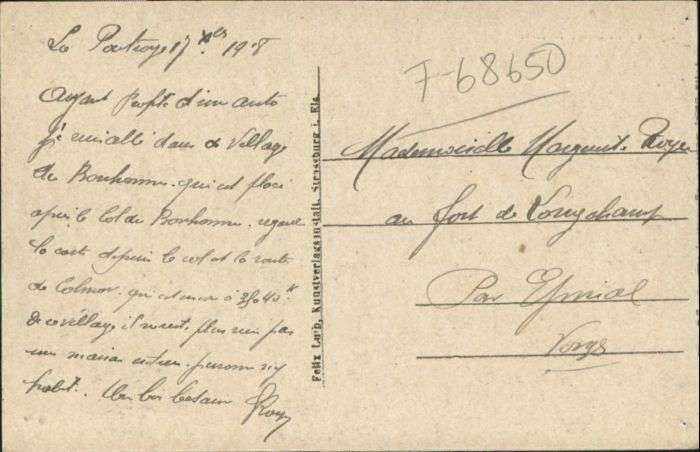 La Poutroye 17 Xbre 1918
Ayant profité d'un auto
je suis allé dans ce village
de Bonhomme qui est placé
après le Col du Bonhomme regarde
la carte depuis le col et la route
de Colmar qui est encore à 35 ou 40 km
de ce village il ne reste plus rien pas
une maison entière personne n'y
habite. Un bon baiser Roye
Felix Luib, Kunstverlagsanstalt, Strassburg i. Els.
F-68650
Mademoiselle Marguerite Roye
au fort de Longchamp
Par Epinal
Vosges